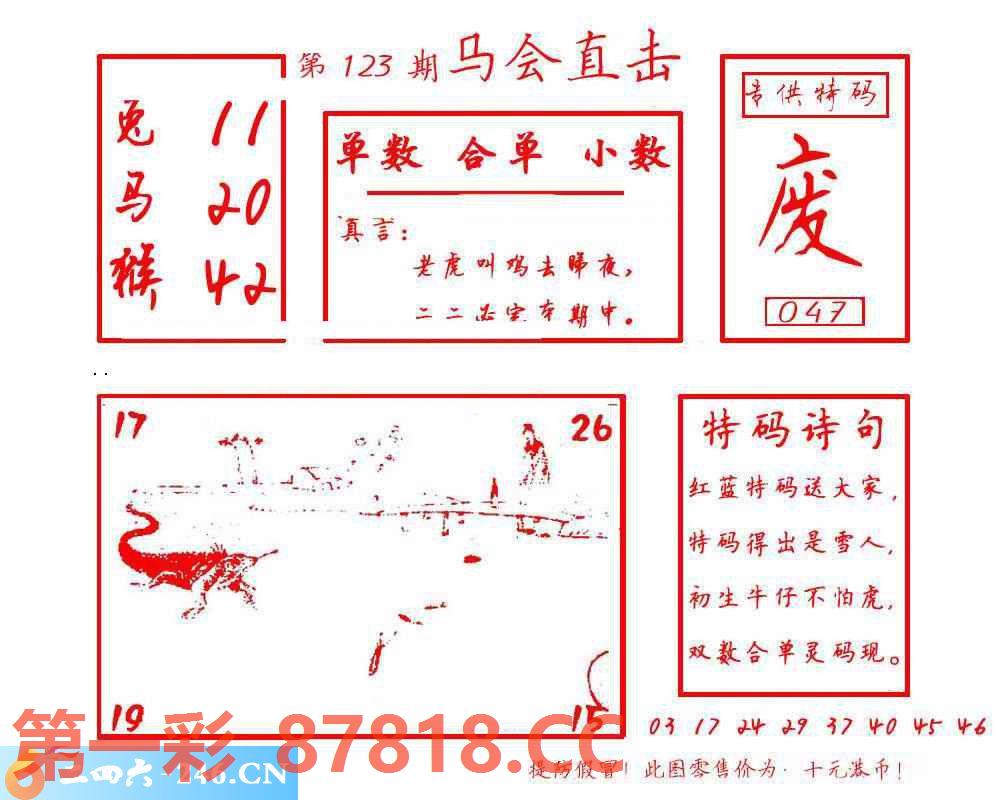 第 123 期 马会直击
兔 11
马 20
猴 42
单数 合单 小数
真言:
老虎叫鸡去睇夜,
二二必定本期中。
专供特码
废
047
17
26
19
15
特码诗句
红蓝特码送大家,
特码得出是雪人,
初生牛仔不怕虎,
双数合单灵码现。
03 17 24 29 37 40 45 46
第一彩 87818.CC
二四六-246.CN
提防假冒!此图零售价为·十元港币!